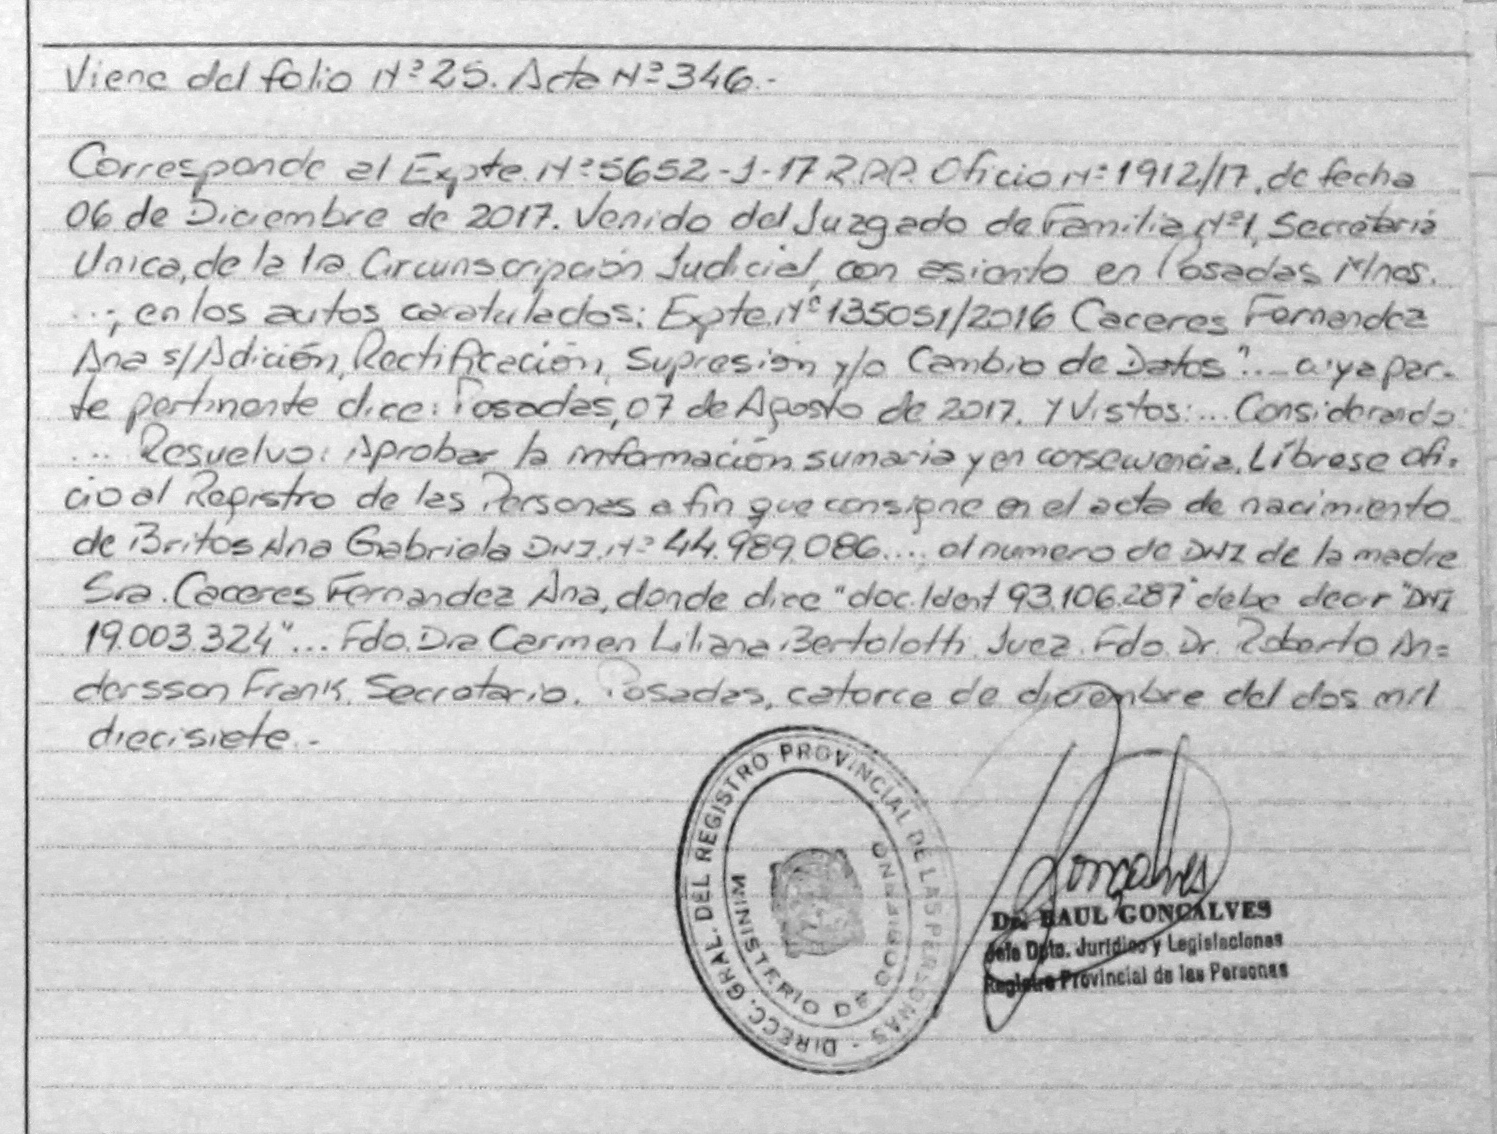 Viene del folio Nº 25. Acta Nº 346.-
Corresponde al Expte. Nº 5652-J-17 R.P.P. Oficio Nº 1912/17, de fecha
06 de Diciembre de 2017. Venido del Juzgado de Familia Nº 1, Secretaria
Unica, de la 1ra Circunscripción Judicial, con asiento en Posadas Mnes.
...; en los autos caratulados: Expte. Nº 135051/2016 Caceres Fernandez
Ana s/Adición, Rectificación, Supresión y/o Cambio de Datos"... cuya par-
te pertinente dice: Posadas, 07 de Agosto de 2017. Y Vistos:... Considerando:
... Resuelvo: Aprobar la información sumaria y en consecuencia, Líbrese ofi-
cio al Registro de las Personas a fin que consigne en el acta de nacimiento
de Britos Ana Gabriela DNI. Nº 44.989.086..., el numero de DNI de la madre
Sra. Caceres Fernandez Ana, donde dice "doc. Ident 93.106.287" debe decir "DNI
19.003.324"... Fdo. Dra Carmen Liliana Bertolotti. Juez. Fdo. Dr. Roberto An=
dersson Frank. Secretario. Posadas, catorce de diciembre del dos mil
diecisiete.-
DIRECC. GRAL. DEL REGISTRO PROVINCIAL DE LAS PERSONAS -
MINISTERIO DE GOBIERNO
Gonçalves
Dr. RAUL GONÇALVES
Jefe Dpto. Jurídico y Legislaciones
Registro Provincial de las Personas